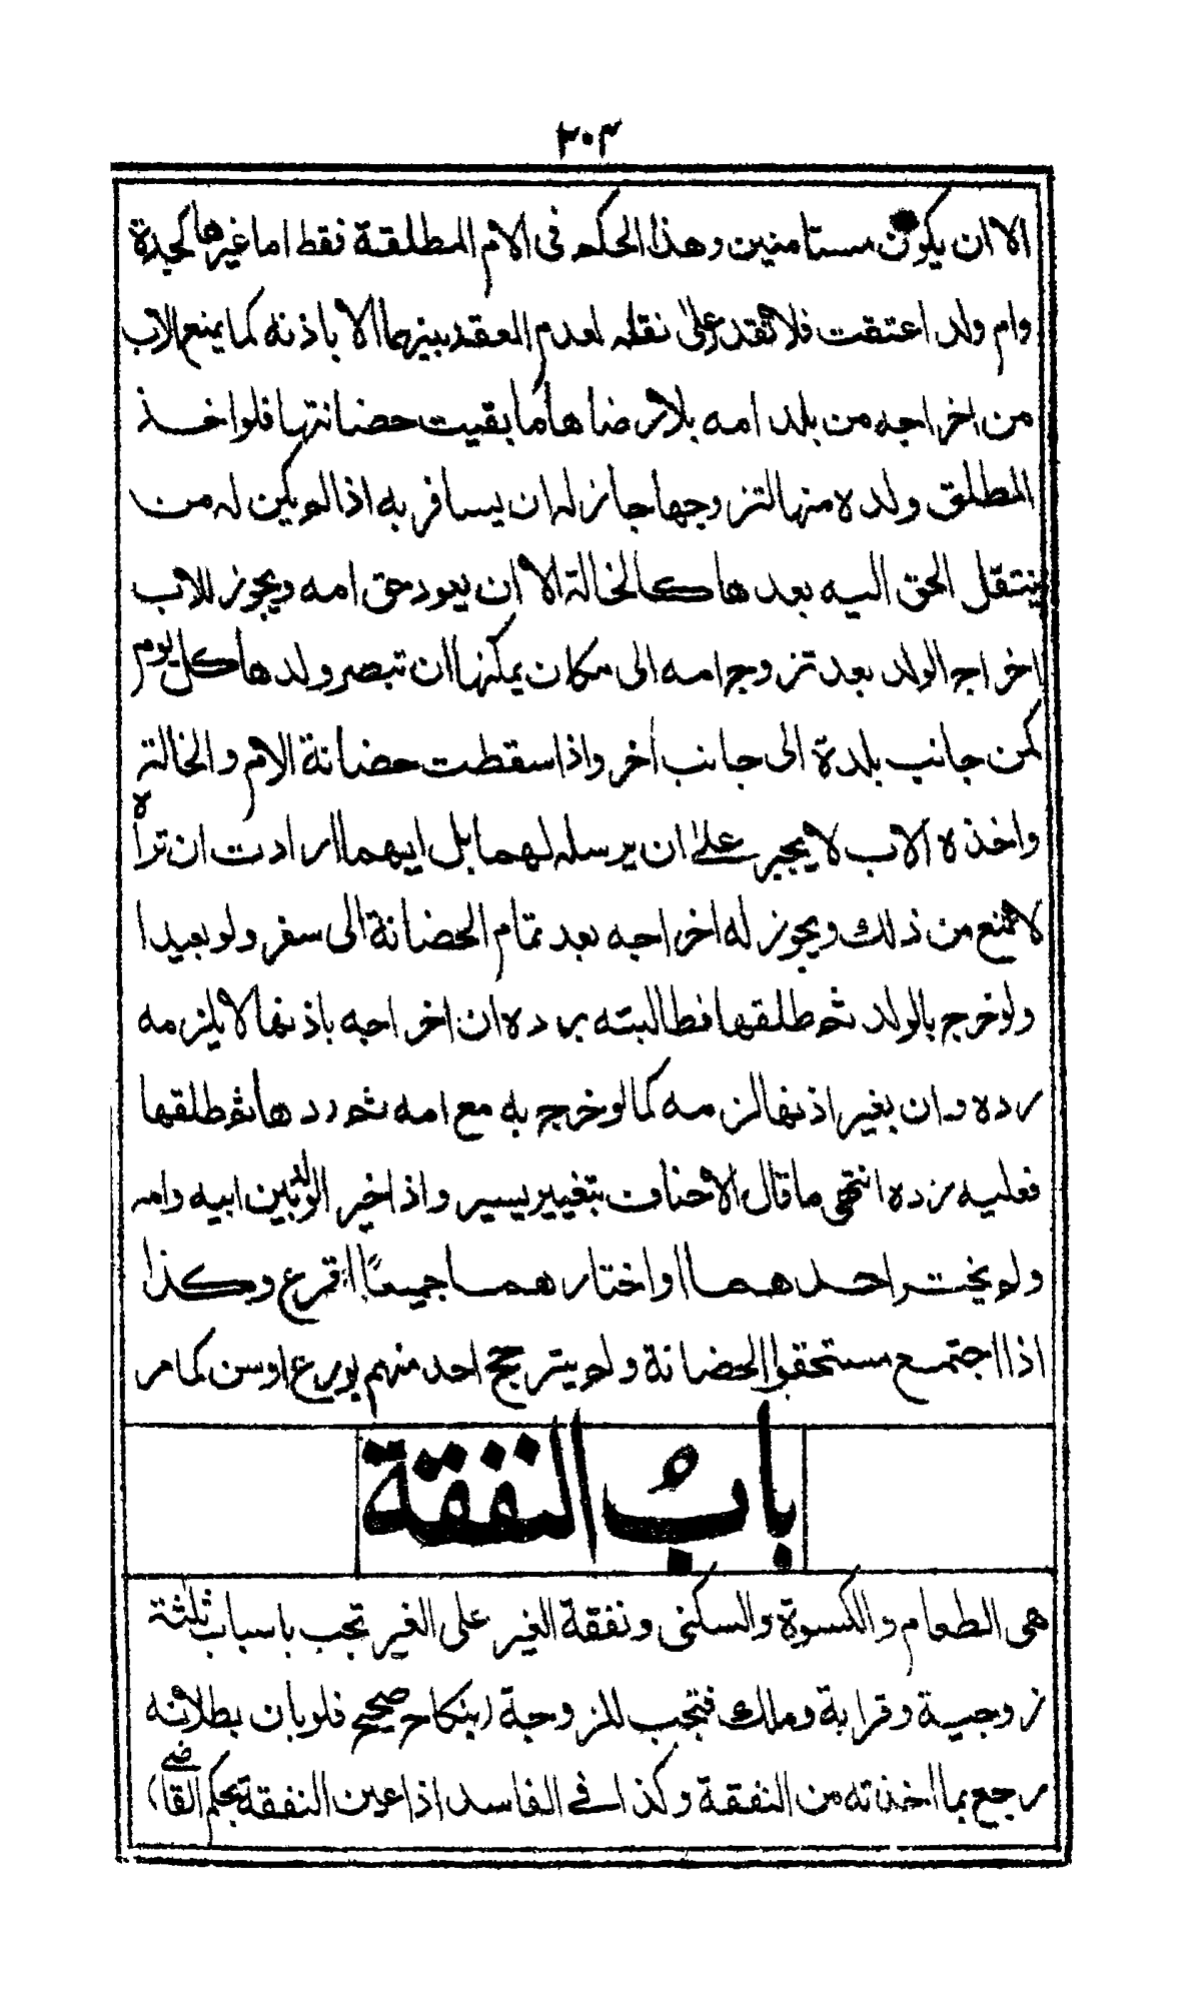 ٣٠٣
الا ان يكون مستامنين وهذا الحكم فى الام المطلقة فقط اما غيرها كجدة
وام ولد اعتقت فلا تقدر على نقله لعدم العقد بينهما الا باذنه كما يمنع الاب
من اخراجه من بلد امه بلا رضاها ما بقيت حضانتها فلو اخذ
المطلق ولده منها لتزوجها جاز له ان يسافر به اذا لم يكن له من
ينتقل الحق اليه بعدها كالخالة الا ان يعود حق امه ويجوز للاب
اخراج الولد بعد تزوج امه الى مكان يمكنها ان تبصر ولدها كل يوم
كمن جانب بلدة الى جانب اخر واذا سقطت حضانة الام والخالة
واخذه الاب لا يجبر على ان يرسله لهما بل ايهما ارادت ان تراه
لا تمنع من ذلك ويجوز له اخراجه بعد تمام الحضانة الى سفر ولو بعيدا
ولو خرج بالولد ثم طلقها فطالبته برده ان اخراجه باذنها لا يلزمه
رده وان بغير اذنها لزمه كما لو خرج به مع امه ثم ردها ثم طلقها
فعليه رده انتهى ما قال الاحناف بتغيير يسير واذا خير الولد بين ابيه وامه
ولم يختر احدهما او اختارهما جميعًا اقرع وكذا
اذا اجتمع مستحقوا الحضانة ولم يترجح احد منهم بورع او سن كما مر
بابُ النفقة
هى الطعام والكسوة والسكنى ونفقة الغير على الغير تجب باسباب ثلثة
زوجية وقرابة وملك فتجب للزوجة (بنكاح صحيح فلو بان بطلانه
رجع بما اخذته من النفقة وكذا فى الفاسد اذا عين النفقة بحكم القاضى)